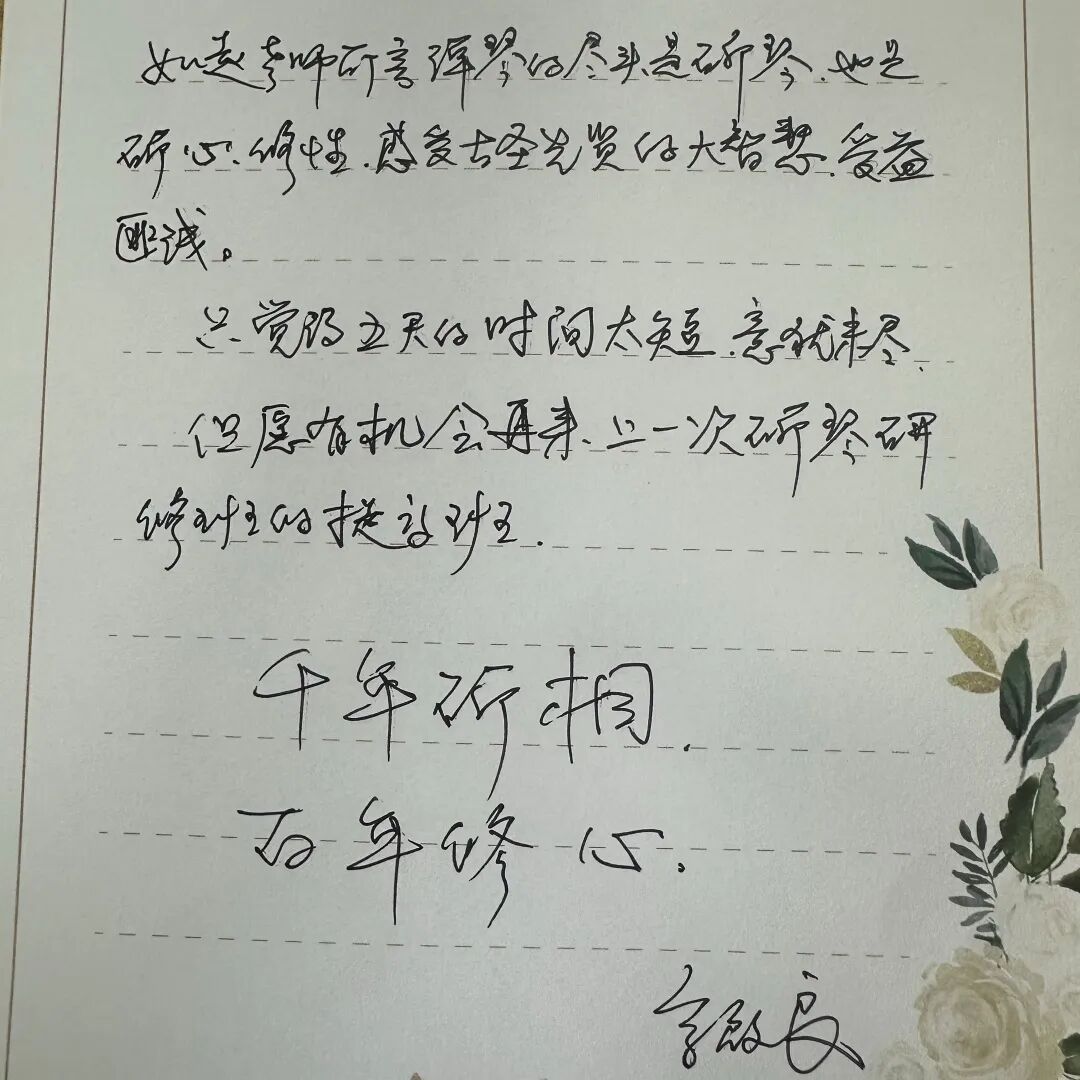 如赵老师所言弹琴的尽头是斫琴、也是
斫心、修性、感受古圣先贤的大智慧、受益
匪浅。
只觉得五天的时间太短、意犹未尽、
但愿有机会再来、上一次斫琴研
修班的提高班.
千年斫桐.
百年修心.